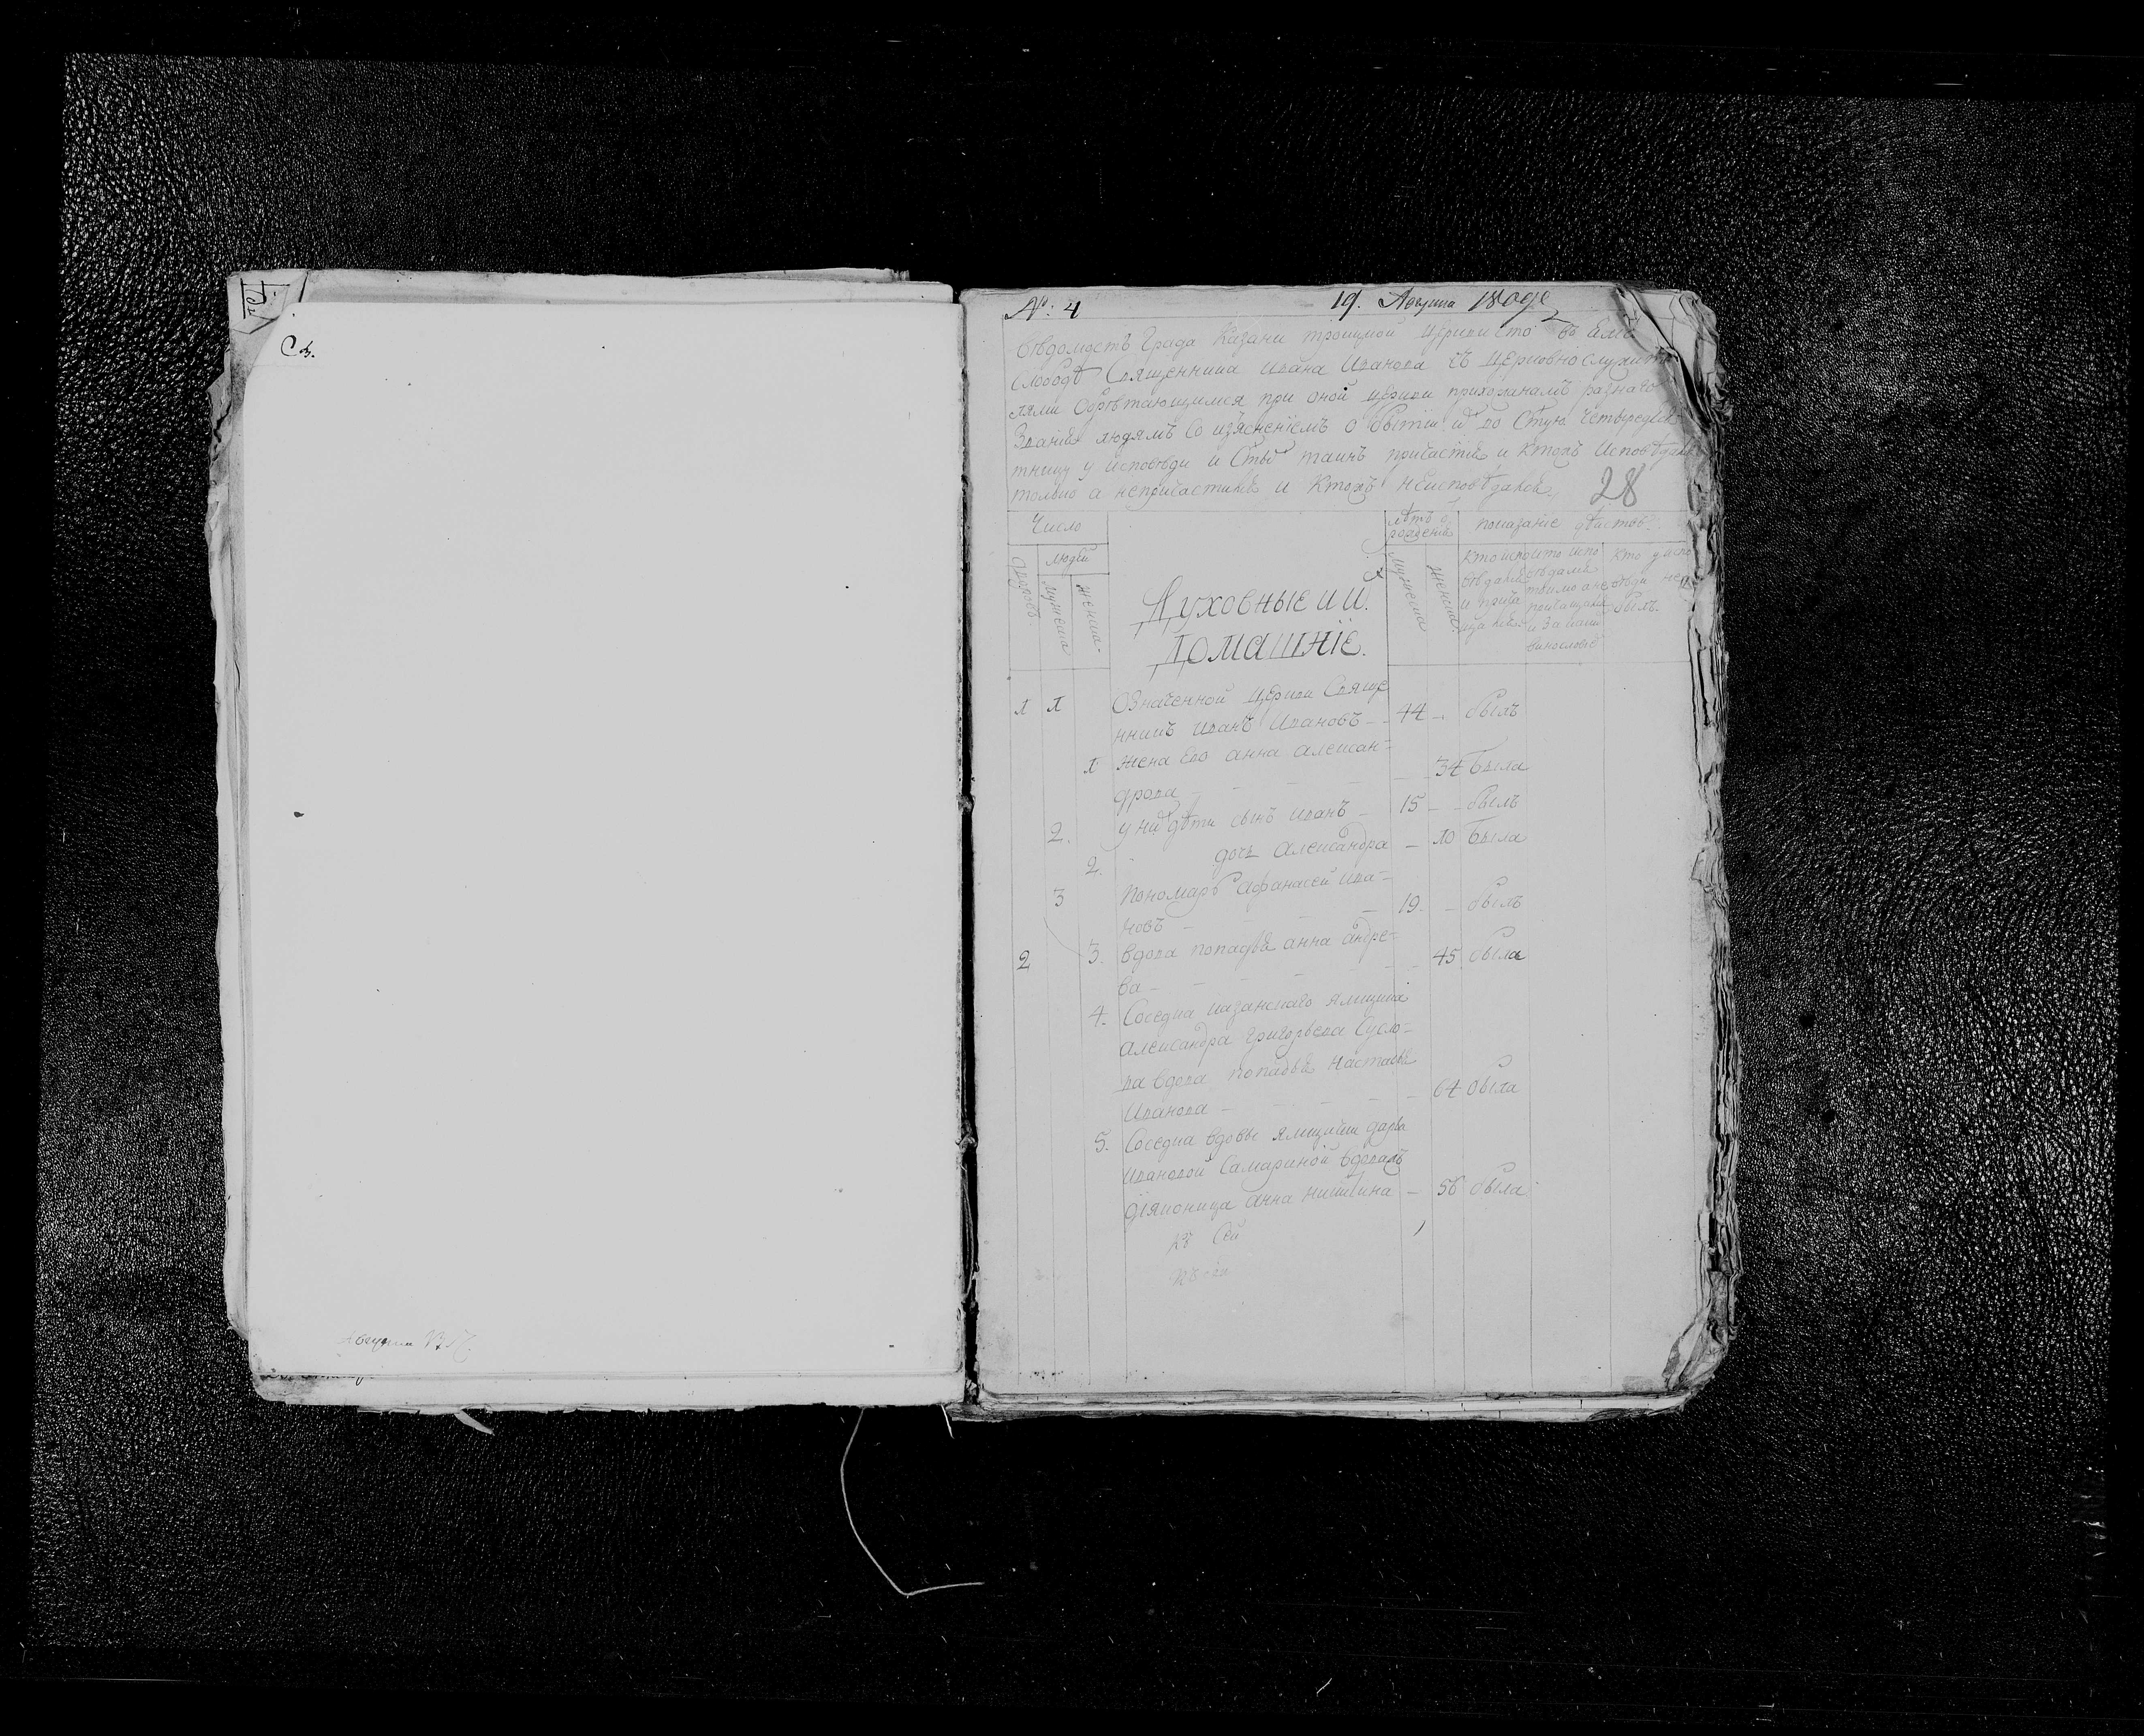 Св.
№: 4
19. Августа 1809
вѣдомость Града Казани троицкой церкви что въ Ямс
слободѣ Священника ивана Иванова съ церковнослужите
лями обрѣтающимся при оной церкви прихожанамъ разнаго
Званія людямъ со изясненіемъ о бытіи
тницу у исповѣди и причастія и ктожъ исповѣдал
только а непричастился и ктожъ неисповѣдался
28
Число
дворовъ
людей
мужеска
женска
Духовные и ихъ
домашніе.
лѣтъ о
рожденія
мужеска
женска
показаніе дѣйствъ
кто испо
вѣдался
и прича
щался
кто испо
вѣдался
токмо а не
причащался
и за каки
винословіе
кто у испо
вѣди не
былъ
1 1 Означенной церкви Свяще
нникъ иванъ Ивановъ 44 былъ
1 жена его анна алексан=
дрова 34 была
2. у них дѣти сынъ иванъ 15 былъ
2. дочь александра 10 была
3 пономарь афанасей ива=
новъ 19. былъ
2 3. вдова попадья анна андре=
ва 45 была
4. Соседка казанскаго ямщика
александра григорьева Сусло=
ва вдова попадья настасья
Иванова 64 была
5. Соседка вдовы ямщички дарьи
ивановой Самариной вдова
діяконица анна никитина 56 была
къ сей